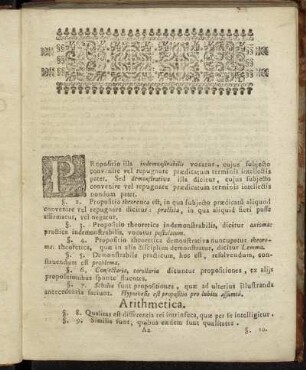 PRopositio illa indemonstrabilis vocatur, cujus subjecto
convenire vel repugnare prædicatum terminis intellectis
patet. Sed demonstrativa illa dicitur, cujus subjecto
convenire vel repugnare prædicatum terminis intellectis
nondum patet.
§. 2. Propositio theoretica est, in qua subjecto prædicatū aliquid
convenire vel repugnare dicitur: practica, in qua aliquid fieri posse
affirmatur, vel negatur.
§. 3. Propositio theoretica indemonstrabilis, dicitur axioma:
practica indemonstrabilis, vocatur postulatum.
§. 4. Propositio theoretica demonstrativa nuncupatur theore-
ma: theoretica, quæ in alia disciplina demonstratur, dicitur Lemma.
§. 5. Demonstrabile practicum, hoc est, resolvendum, con-
struendum est problema.
§. 6. Consectaria, corollaria dicuntur propositiones, ex aliis
propositionibus sponte fluentes.
§. 7. Scholia sunt propositiones, quæ ad ulterius illustranda
antecedentia faciunt. Hypothesis est propositio pro lubitu assumta.
Arithmetica.
§. 8. Qualitas est differentia rei intrinseca, quæ per se intelligitur.
§. 9. Similia sunt, quibus eædem sunt qualitates.
A2 §. 10.